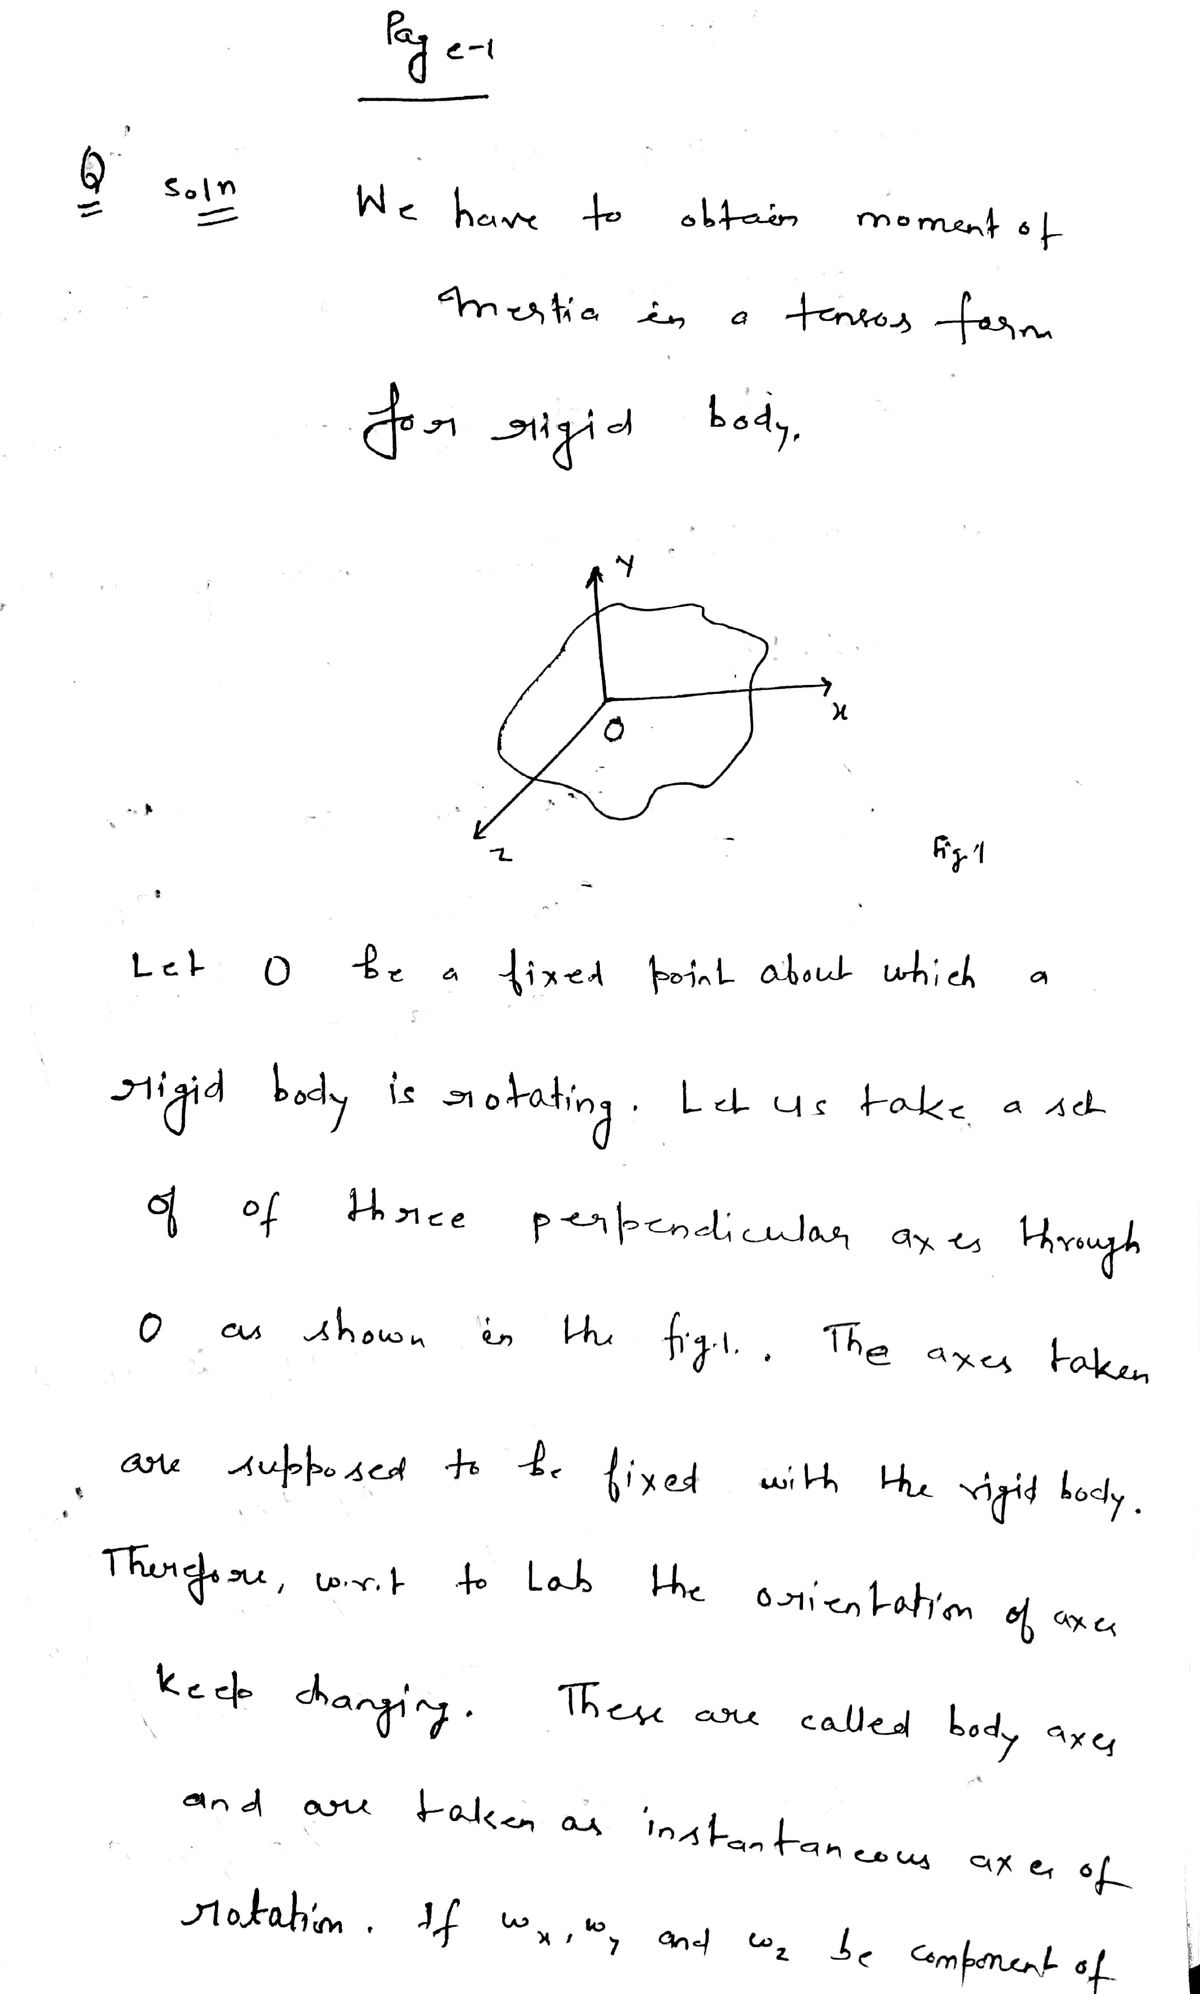 Page-1
Q Soln We have to obtain moment of
Inertia in a tensor form
for rigid body.
Y
x
O
z
Fig.1
Let O be a fixed point about which a
rigid body is rotating. Let us take a set
of of three perpendicular axes through
O as shown in the fig.1.. The axes taken
are supposed to be fixed with the rigid body.
Therefore, w.r.t to Lab the orientation of axes
keep changing. These are called body axes
and are taken as instantaneous axes of
rotation. If ωx, ωy and ωz be component of